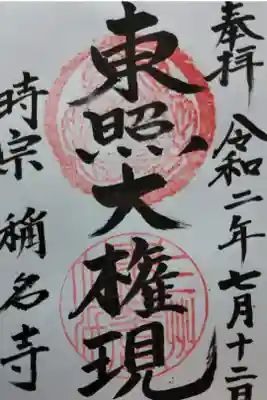 奉拝 令和二年七月十二日
東照大権現
時宗 稱名寺